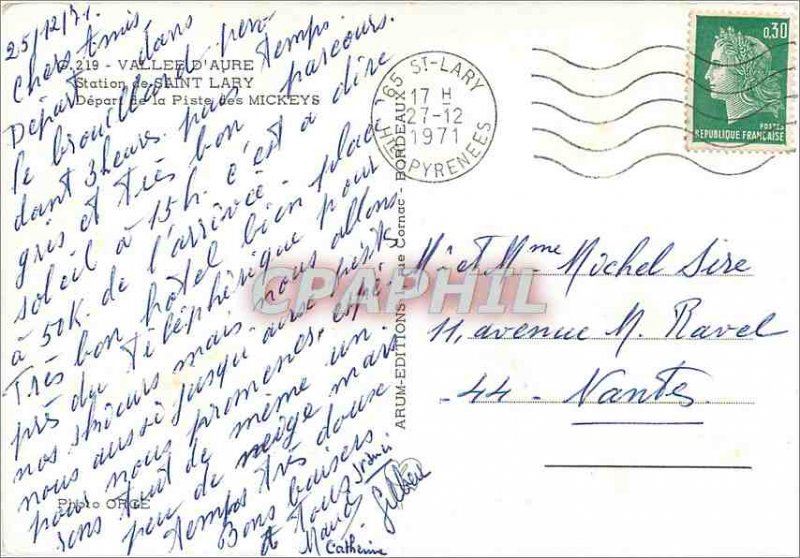 25/12/71.
Chers Amis
Départ dans
le brouillard pen
dant 3 heures puis temps
gris et très bon parcours.
soleil à 15h. c'est à dire
à 50K. de l'arrivée.
Très bon hôtel bien placé
près du téléphérique pour
nos skieurs mais nous allons
nous aussi jusqu'aux pistes
pour nous promener.
tout de même un
peu de neige mais
temps très doux
Bons baisers
à tous
Catherine
C.219 - VALLEE D'AURE
Station de SAINT LARY
Départ de la Piste des MICKEYS
Photo ORGE
ARUM-EDITIONS rue Cornac - BORDEAUX
65 ST-LARY
17 H
27-12
1971
HTES PYRENEES
0,30
POSTES
REPUBLIQUE FRANÇAISE
CPAPHIL
Mr et Mme Michel Sire
11, avenue M. Ravel
-44- Nantes